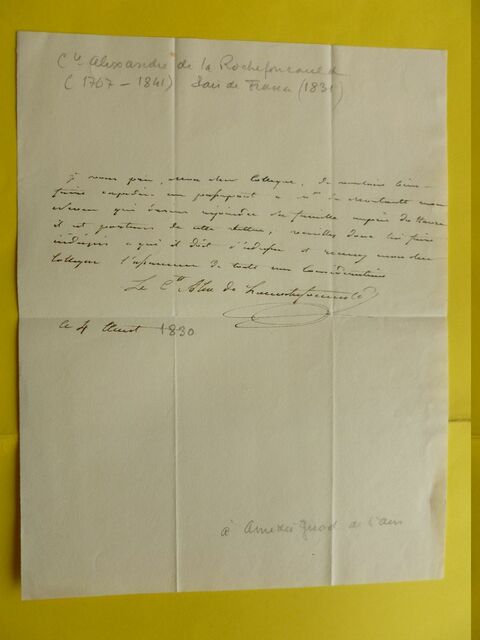 Cte Alexandre de la Rochefoucauld
(1767 - 1841) Pair de France (1831)
Je vous prie, mon cher Collègue, de vouloir bien
faire expédier un passeport a Mr de
qui désire rejoindre sa famille auprès du Havre
il est porteur de cette lettre, veuillez donc lui faire
indiquer a qui il doit s'adresser et recevez mon cher
Collegue l'assurance de toute ma Considération
Le Cte Alex de Larochefoucauld
ce 4 Aout 1830
à Amédée Girod de l'Ain